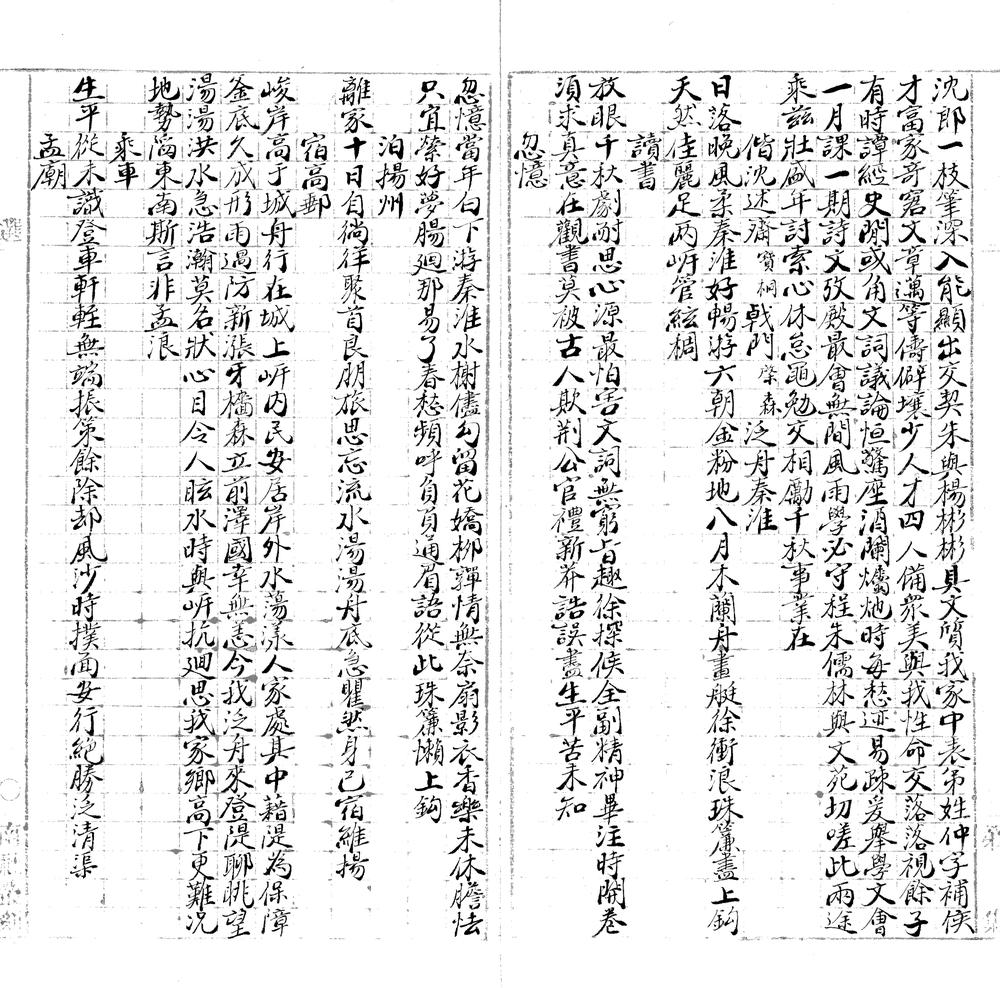 沈郎一枝筆深入能顯出交契朱與楊彬彬具文質我家中表弟姓仲字補侯
才富家奇窘文章邁等儕僻壤少人才四人備衆美與我性命交落落視餘子
有時譚經史閒或角文詞議論恒驚座酒闌爐灺時每愁迹易疎爰舉學文會
一月課一期詩文攷殿最會無間風雨學必守程朱儒林與文苑切嗟此兩途
乘兹壯盛年討索心休怠黽勉交相勵千秋事業在
偕沈述齋寶桐戟門棨森泛舟秦淮
日落晚風柔秦淮好暢游六朝金粉地八月木蘭舟畫艇徐衝浪珠簾盡上鈎
天然佳麗足兩岍管絃稠
讀書
放眼千秋劇耐思心源最怕害文詞無窮旨趣徐探候全副精神畢注時開卷
須求真意在觀書莫被古人欺荆公官禮新莽誥誤盡生平苦未知
忽憶
忽憶當年白下游秦淮水榭儘勾留花嬌柳嚲情無奈扇影衣香樂未休膽怯
只宜縈好夢腸廻那易了春愁頻呼負負通眉語從此珠簾懶上鈎
泊揚州
離家十日自徜徉聚首良朋旅思忘流水湯湯舟底急瞿然身已宿維揚
宿高郵
峻岸高于城舟行在城上岍内民安居岸外水蕩漾人家處其中藉隄為保障
釜底久成形雨過防新漲牙檣森立前澤國幸無恙今我泛舟來登隄聊眺望
湯湯洪水急浩瀚莫名狀心目令人眩水時與岍抗廻思我家鄉高下更難况
地勢陷東南斯言非孟浪
乘車
生平從未識登車軒輊無端振策餘除却風沙時撲面安行絶勝泛清渠
孟廟